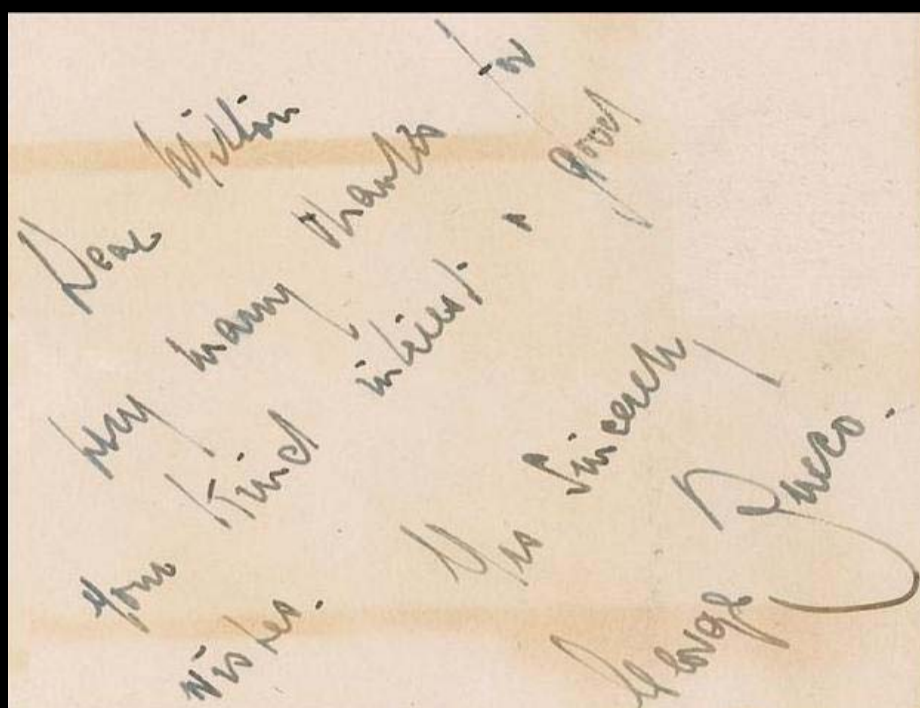 Dear Milton
Very many thanks for
your kind interest & good
wishes.
Yrs Sincerely
George Zucco.